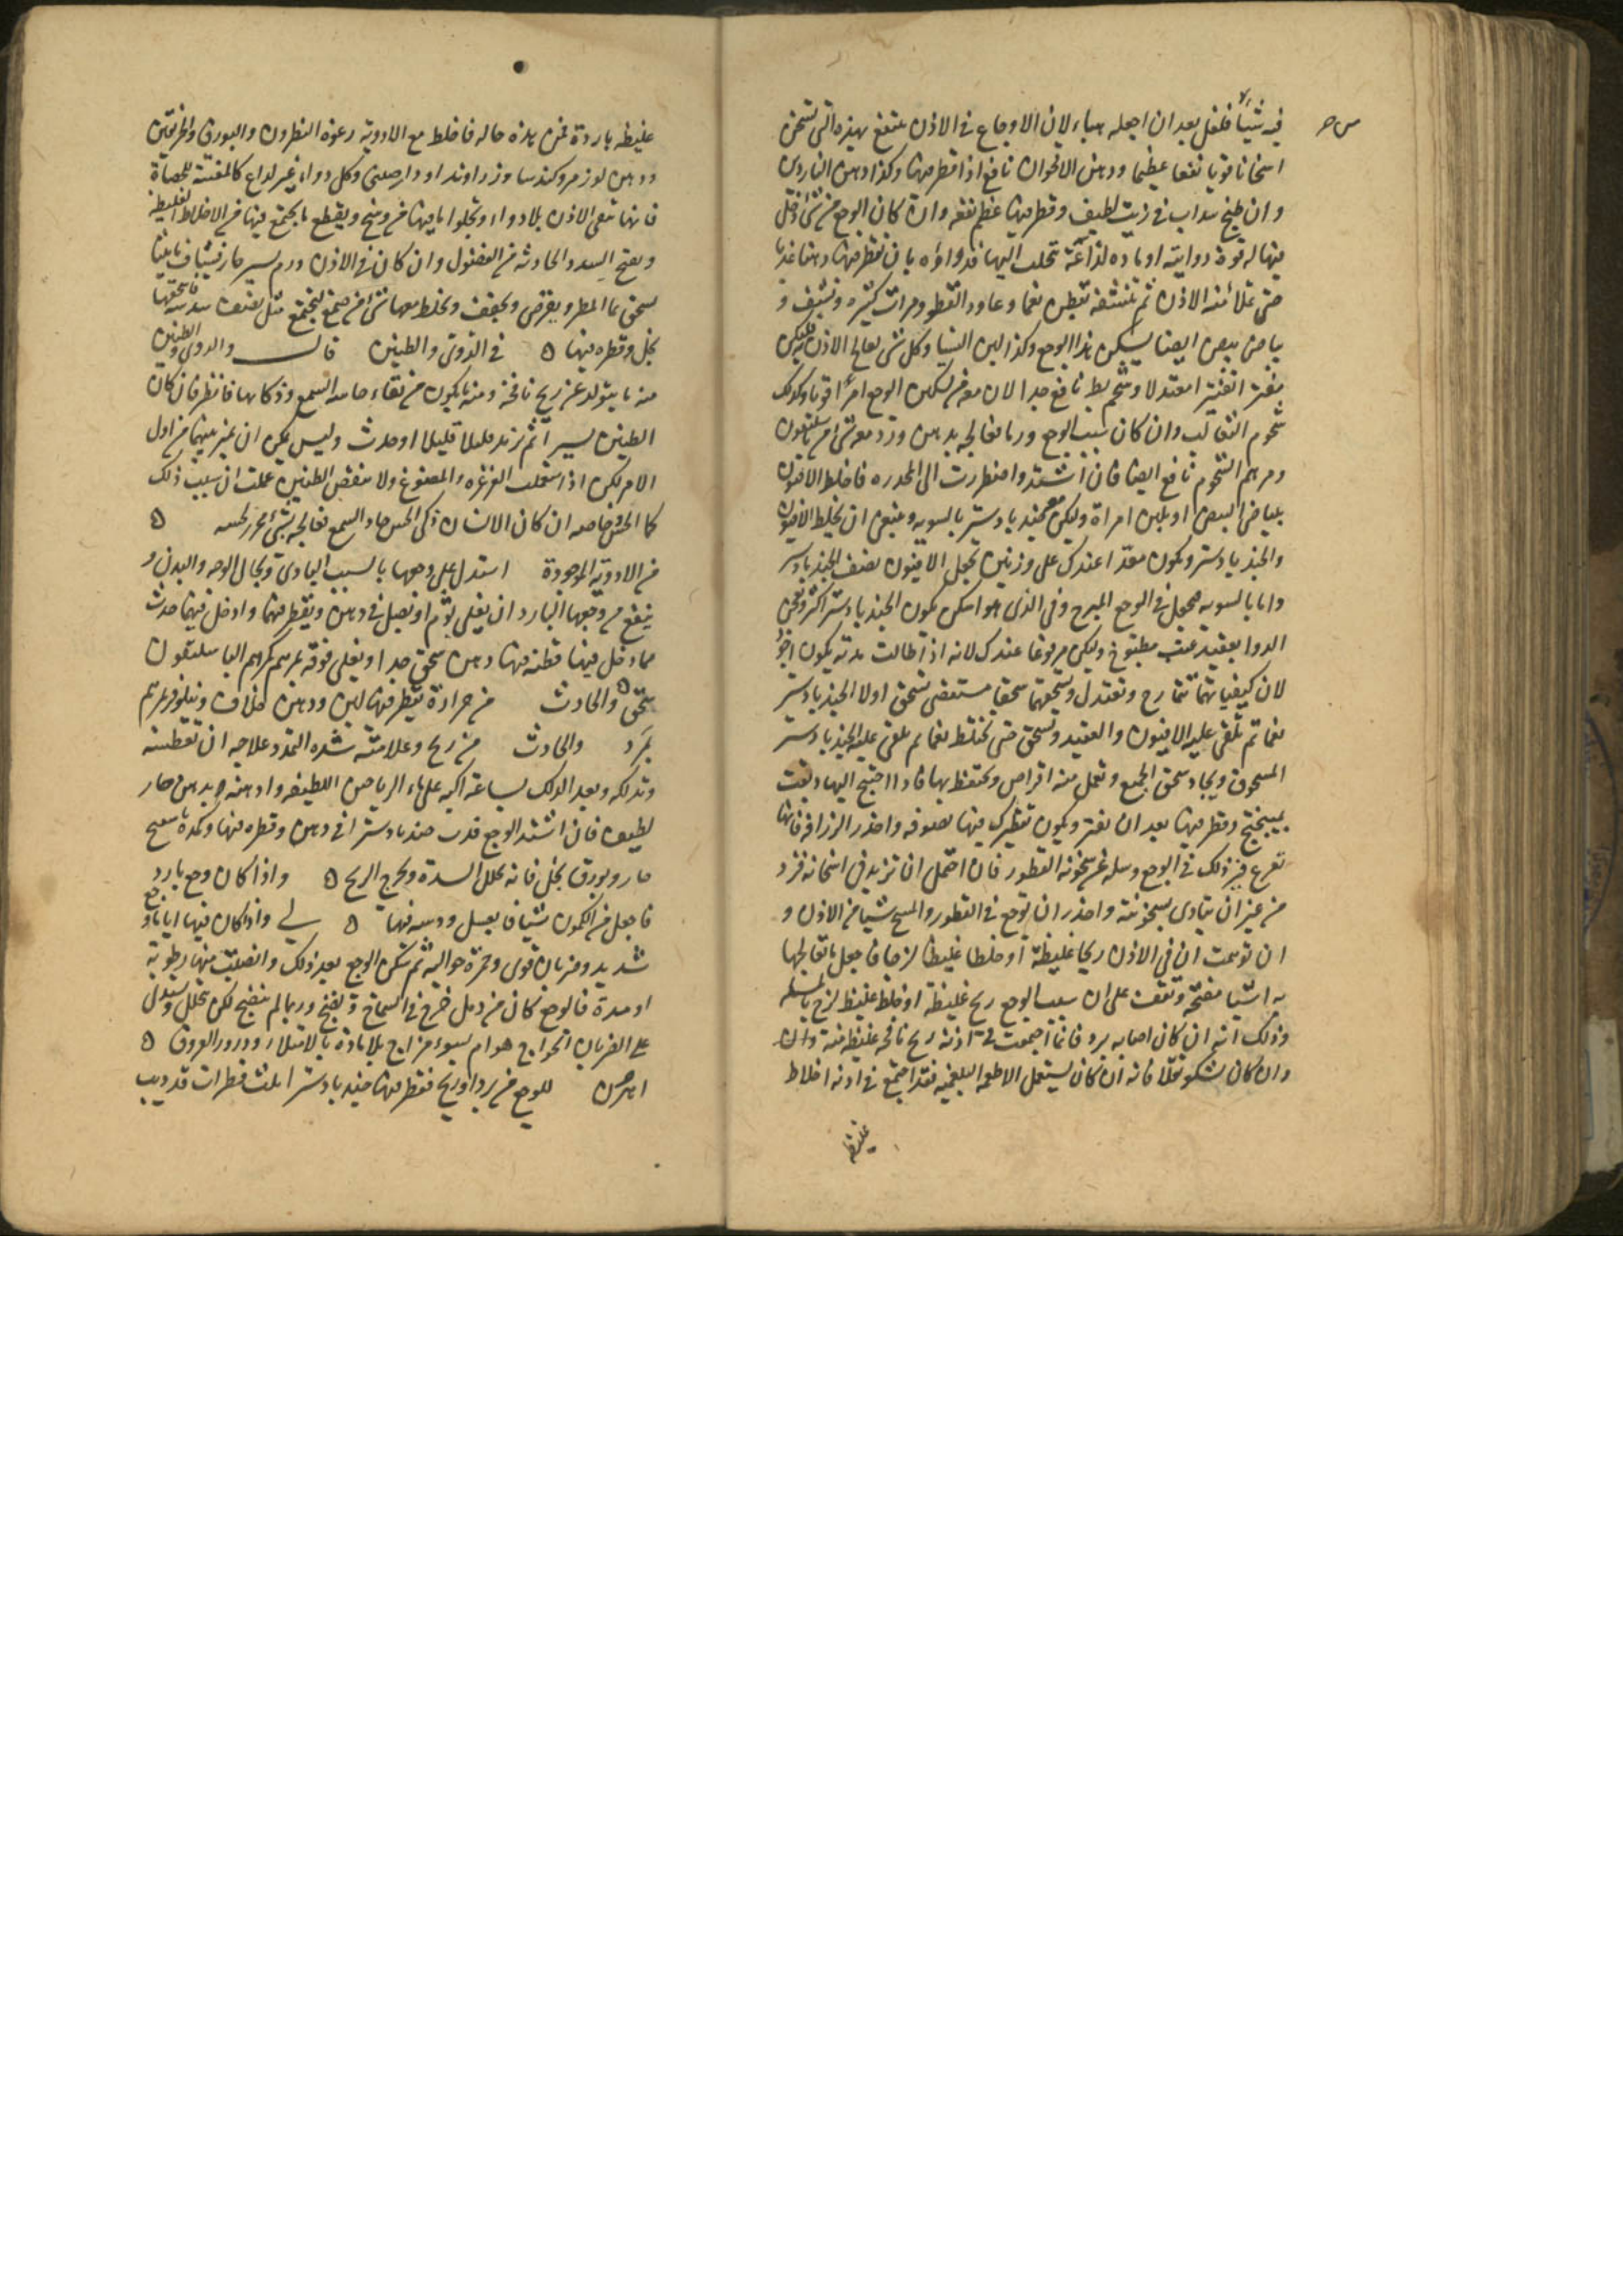 س ح
فيه شيئا فلفل بعد ان اجعله هباء لان الاوجاع في الاذن تنتفع بهذه التي تسخن
اسخانا قويا نفعا عظيما ودهن الاقحوان نافع اذا قطر فيها وكذا دهن الناردين
وان طبخ سداب في زيت لطيف وقطر فيها عظم نفعه وان كان الوجع من شئ دخل
فيها له قوة دوايته او ماده لذاعة تحلب اليها فدواؤه بان تقطر فيها دهنا عذبا
حتى تملأ منه الاذن ثم تنشفه بقطن نعما وعاود القطور مرات كثيره وتنشف و
بياض بيض ايضا يسكن هذا الوجع وكذا لبن النسا وكل شئ تعالج الاذن به فليكن
مفترا تفتيرا معتدلا وشحم بط نافع جدا لان معه في تسكين الوجع امرا قويا وكذلك
شحوم الثعالب وان كان سبب الوجع ورما فعالجه بدهن ورد معه شئ من باسليقون
ومرهم الشحوم نافع ايضا فان اشتد واضطررت الى المخدره فاخلط الافيون
ببياض البيض او بلبن امراة وليكن معه جندبادستر بالسويه وينبغي ان يخلط الافيون
والجندبادستر ويكون معدا عندك على وزنين يجعل الافيون نصف الجندبادستر
واما بالسويه فيجعل في الوجع المبرح وفي الذي هو اسكن يكون الجندبادستر اكثر ويعجن
الدوا بعقيد عنب مطبوخ وليكن مرفوعا عندك لانه اذا طالت مدته يكون اجود
لان كيفياتهما تتمازج وتعتدل وتسحقهما سحقا مستقصى تسحق اولا الجندبادستر
نعما ثم تلقى عليه الافيون والعقيد وتسحق حتى تختلط نعما ثم تلقى عليه الجندبادستر
المسحوق ويجاد سحق الجميع وتعمل منه اقراص وتحتفظ بها فاذا احتيج اليها ديفت
بميبختج وقطر فيها بعد ان يفتر ويكون تقطيرك فيها بصوفه واحذر الزراقه فانها
تقرع فيزيد ذلك في الوجع وسله عن سخونه القطور فان احتمل ان تزيد في اسخانه فزد
من غير ان يتاذى بسخونته واحذر ان توجع في القطور والمسح شيا من الاذن و
ان توهمت ان في الاذن ريحا غليظة او خلطا غليظا لزجا فاجعل ما تعالجها
به اشيا مفتحه وتقف على ان سبب الوجع ريح غليظة او خلط غليظ لزج بالمسله
وذلك انه ان كان اصابه برد فانما اجتمعت في اذنه ريح نافخه غليظه منه وان
وان كان يشكو ثقلا فانه ان كان يستعمل الاطعمه البلغميه فقد اجتمع في اذنه اخلاط
غليظه
غليظه باردة فمن هذه حاله فاخلط مع الادويه رغوة النطرون والبورق والخربقين
ودهن لوز مر وكندسا وزراوند او دارصيني وكل دواء غير لداع كالمفتته للحصاة
فانها تنقى الاذن بلا دواء وتجلوا ما فيها من وسخ ويقطع ما يجتمع فيها من الاخلاط الغليظه
ويفتح السدد الحادثه من الفضول وان كان في الاذن ورم يسير حار فشياف ماميثا
يسحق بماء المطر ويقرص ويجفف ويخلط معها شئ من صمغ ليجتمع مثل نصف سدسه فاسحقها
بخل وقطره فيها ه في الدوى والطنين قال والدوى والطنين
منه ما يتولد عن ريح نافخه ومنه ما يكون من نقاء حاسه السمع وذكائها فانظر فان كان
الطنين يسيرا ثم تزيد قليلا قليلا او حدث وليس يمكن ان تميز بينهما من اول
الامر لكن اذا استعملت الغرغره والمضوغ ولا منقص الطنين علمت ان سبب ذلك
ذكا الحس خاصه ان كان الانسان ذكى الحس حاد السمع فعالجه بشئ مخدر للحسه ه
من الادويه الموجودة استدل على وجعها بالسبب البادى وبحال الوجه والبدن و
ينفع من وجعها البارد ان يغلى ثوم او بصل في دهن ويقطر فيها وادخل فيها حدث
مما دخل فيها قطنه فيها دهن سخن جدا ويغلى فوقه بمرهم كمرهم الباسليقون
سخن ه والحادث من حرارة يقطر فيها لبن ودهن خلاف ونيلوفر مبرد بمرهم
بمَرد والحادث من ريح وعلامته شده التمدد علاجه ان تعطسه
وتدلكه وبعد الدلك بساعة اكبه على ماء الرياحين اللطيفه وادهنه بدهن حار
لطيف فان اشتد الوجع فدب جندبادسترا في دهن وقطره فيها وكمده بملح
حار وبورق بخل فانه يحلل السدة ويخرج الريح ه واذا كان وجع بارد
فاجعل من الكمون شيافا بعسل ودسه فيها ه لى واذا كان فيها اياما وجع
شديد وضربان قوى وحمرة حواليه ثم سكن الوجع بعد ذلك وانصلبت منها رطوبه
او مدة فالوجع كان من دمل خرج في الصماخ ونضج وربما لم ينضج لكن تحلل ويستدل
على الضربان الخراج هو ام سوء مزاج بلا مادة بالامتلاء ودرور العروق ه
اهرن للوجع من برد او ريح فقطر فيها جندبادستر ثلث قطرات قد ديب